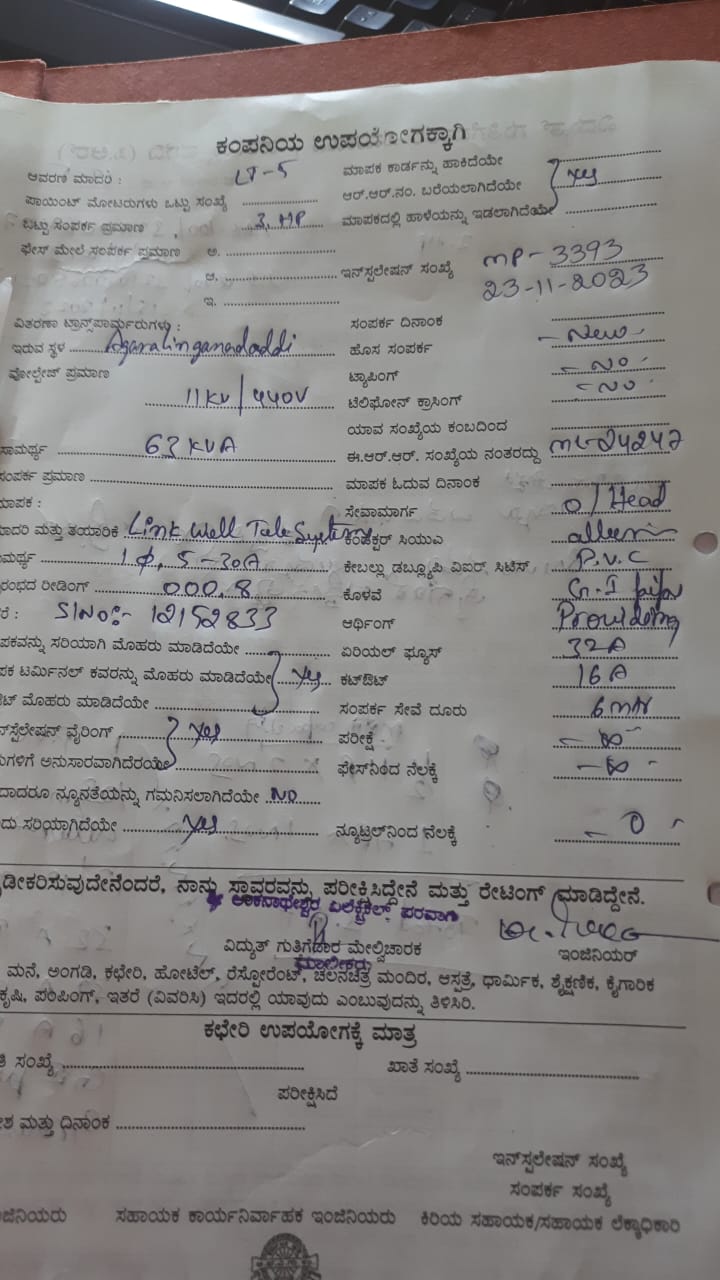 ಕಂಪನಿಯ ಉಪಯೋಗಕ್ಕಾಗಿ
ಆವರಣ ಮಾದರಿ : LT-5 ಮಾಪಕ ಕಾರ್ಡನ್ನು ಹಾಕಿದೆಯೇ
ಪಾಯಿಂಟ್ ಮೋಟರುಗಳು ಒಟ್ಟು ಸಂಖ್ಯೆ ಆರ್.ಆರ್.ನಂ. ಬರೆಯಲಾಗಿದೆಯೇ yes
ಒಟ್ಟು ಸಂಪರ್ಕ ಪ್ರಮಾಣ 3 HP ಮಾಪಕದಲ್ಲಿ ಹಾಳೆಯನ್ನು ಇಡಲಾಗಿದೆಯೇ
ಫೇಸ್ ಮೇಲೆ ಸಂಪರ್ಕ ಪ್ರಮಾಣ ಅ.
ಆ. ಇನ್‌ಸ್ಟಲೇಷನ್ ಸಂಖ್ಯೆ MP-3393
ಇ. 23-11-2023
ವಿತರಣಾ ಟ್ರಾನ್ಸ್‌ಪಾರ್ಮರುಗಳು : ಸಂಪರ್ಕ ದಿನಾಂಕ
ಇರುವ ಸ್ಥಳ Agaralinganadoddi ಹೊಸ ಸಂಪರ್ಕ - New -
ವೋಲ್ಟೇಜ್ ಪ್ರಮಾಣ ಟ್ಯಾಪಿಂಗ್ - No -
11KV/440V ಟೆಲಿಫೋನ್ ಕ್ರಾಸಿಂಗ್ - No -
ಯಾವ ಸಂಖ್ಯೆಯ ಕಂಬದಿಂದ
ಸಾಮರ್ಥ್ಯ 63 KVA ಈ.ಆರ್.ಆರ್. ಸಂಖ್ಯೆಯ ನಂತರದ್ದು ML-24247
ಸಂಪರ್ಕ ಪ್ರಮಾಣ ಮಾಪಕ ಓದುವ ದಿನಾಂಕ
ಮಾಪಕ : ಸೇವಾಮಾರ್ಗ O/Head
ಮಾದರಿ ಮತ್ತು ತಯಾರಿಕೆ Link Well Tele Systems ಕಂಡಕ್ಟರ್ ಸಿಯುಎ
ಸಾಮರ್ಥ್ಯ 1ϕ, 5-30A ಕೇಬಲ್ಲು ಡಬ್ಲ್ಯೂಪಿ ವಿಐರ್ ಸಿಟಿಸ್ P.V.C
ಪ್ರಾರಂಭದ ರೀಡಿಂಗ್ 000.8 ಕೊಳವೆ G.I
SlNo:- 12152833 ಆರ್ಥಿಂಗ್ Providing
ಮಾಪಕವನ್ನು ಸರಿಯಾಗಿ ಮೊಹರು ಮಾಡಿದೆಯೇ ಏರಿಯಲ್ ಫ್ಯೂಸ್ 32A
ಮಾಪಕ ಟರ್ಮಿನಲ್ ಕವರನ್ನು ಮೊಹರು ಮಾಡಿದೆಯೇ yes ಕಟ್‌ಔಟ್ 16A
ಮೊಹರು ಮಾಡಿದೆಯೇ ಸಂಪರ್ಕ ಸೇವೆ ದೂರು 6 mtr
ಇನ್‌ಸ್ಟೆಲೇಷನ್ ವೈರಿಂಗ್ yes ಪರೀಕ್ಷೆ - ∞ -
ಅನುಸಾರವಾಗಿದೆರಯೇ ಫೇಸ್‌ನಿಂದ ನೆಲಕ್ಕೆ - ∞ -
ನ್ಯೂನತೆಯನ್ನು ಗಮನಿಸಲಾಗಿದೆಯೇ NO
ಸರಿಯಾಗಿದೆಯೇ yes ನ್ಯೂಟ್ರಲ್‌ನಿಂದ ನೆಲಕ್ಕೆ - 0 -
ನಾನು ಸ್ಥಾವರವನ್ನು ಪರೀಕ್ಷಿಸಿದ್ದೇನೆ ಮತ್ತು ರೇಟಿಂಗ್ ಮಾಡಿದ್ದೇನೆ.
ಎಲೆಕ್ಟ್ರಿಕಲ್ಸ್ ಪರವಾಗಿ
ವಿದ್ಯುತ್ ಗುತ್ತಿಗೆದಾರ ಮೇಲ್ವಿಚಾರಕ ಇಂಜಿನಿಯರ್
ಮಾಲೀಕರು
ಮನೆ, ಅಂಗಡಿ, ಕಛೇರಿ, ಹೋಟೆಲ್, ರೆಸ್ಟೋರೆಂಟ್, ಚಲನಚಿತ್ರ ಮಂದಿರ, ಆಸ್ಪತ್ರೆ, ಧಾರ್ಮಿಕ, ಶೈಕ್ಷಣಿಕ, ಕೈಗಾರಿಕ
ಕೃಷಿ, ಪಂಪಿಂಗ್, ಇತರೆ (ವಿವರಿಸಿ) ಇದರಲ್ಲಿ ಯಾವುದು ಎಂಬುವುದನ್ನು ತಿಳಿಸಿರಿ.
ಕಛೇರಿ ಉಪಯೋಗಕ್ಕೆ ಮಾತ್ರ
ಸಂಖ್ಯೆ ಖಾತೆ ಸಂಖ್ಯೆ
ಪರೀಕ್ಷಿಸಿದೆ
ಮತ್ತು ದಿನಾಂಕ
ಇನ್‌ಸ್ಟಲೇಷನ್ ಸಂಖ್ಯೆ
ಸಂಪರ್ಕ ಸಂಖ್ಯೆ
ಸಹಾಯಕ ಕಾರ್ಯನಿರ್ವಾಹಕ ಇಂಜಿನಿಯರು ಕಿರಿಯ ಸಹಾಯಕ/ಸಹಾಯಕ ಲೆಕ್ಕಾಧಿಕಾರಿ